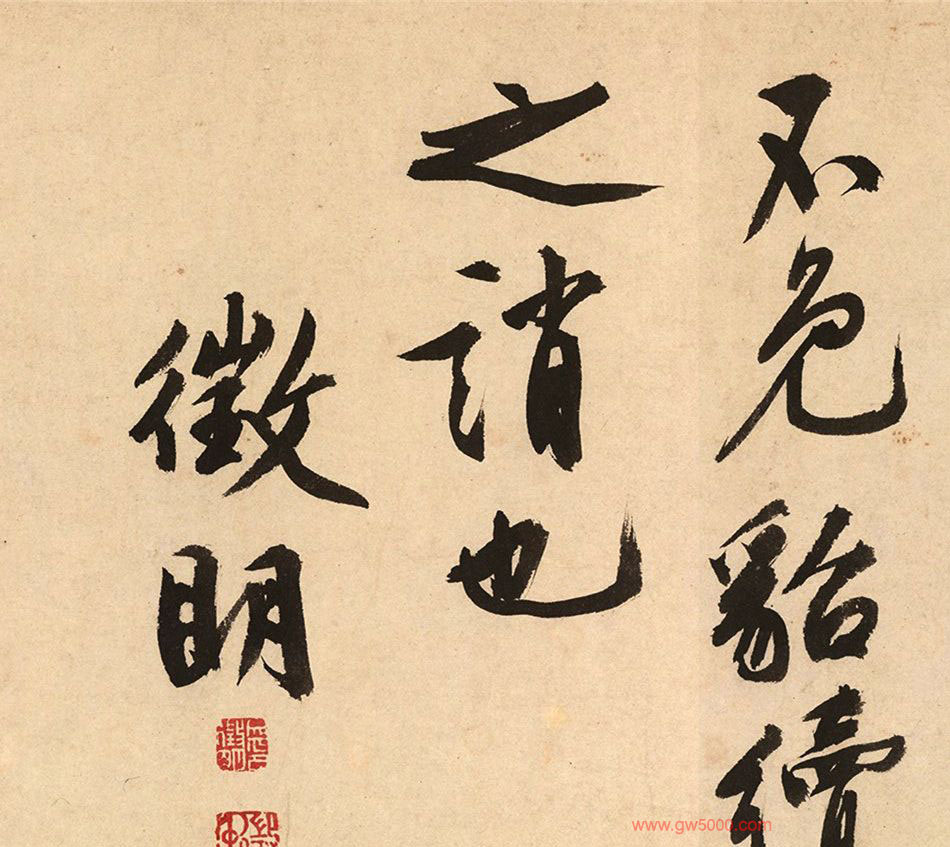 不免貂續
之誚也
徵明
www.gw5000.com